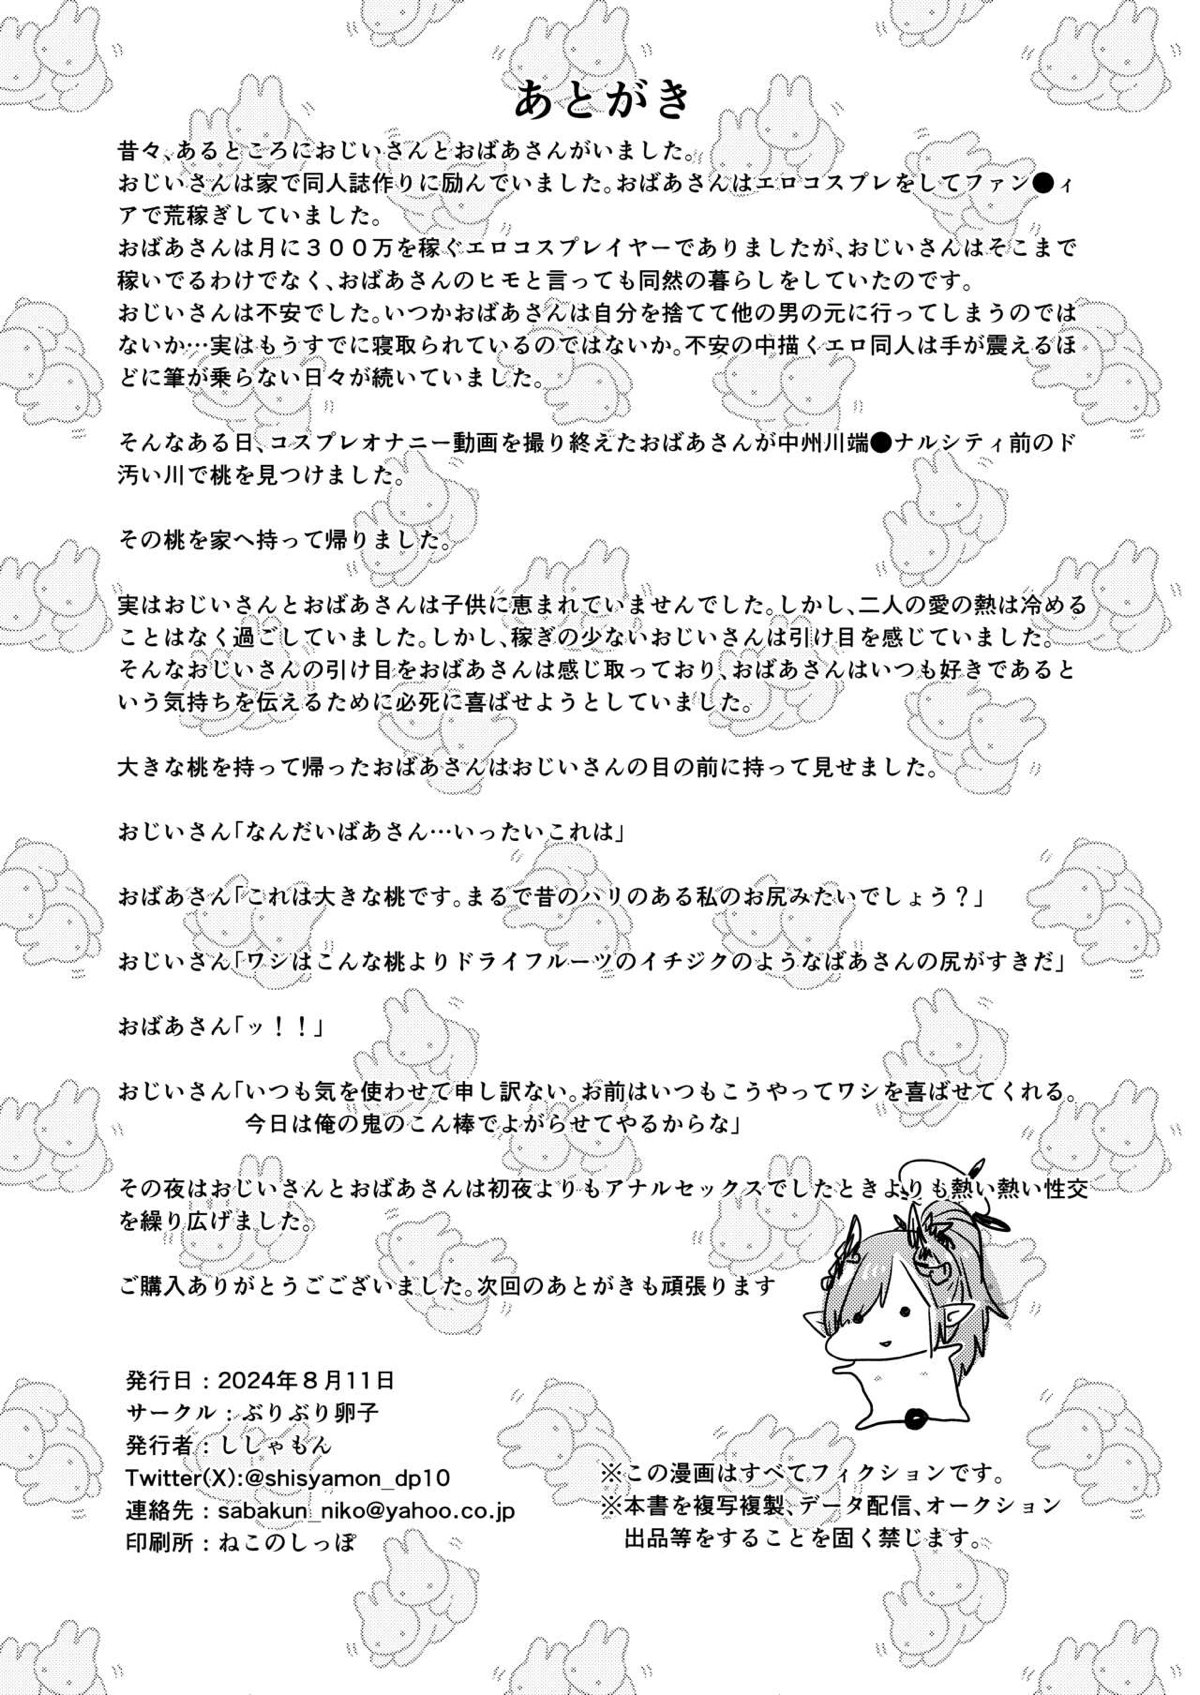 あとがき
昔々、あるところにおじいさんとおばあさんがいました。
おじいさんは家で同人誌作りに励んでいました。おばあさんはエロコスプレをしてファン●ィ
アで荒稼ぎしていました。
おばあさんは月に３００万を稼ぐエロコスプレイヤーでありましたが、おじいさんはそこまで
稼いでるわけでなく、おばあさんのヒモと言っても同然の暮らしをしていたのです。
おじいさんは不安でした。いつかおばあさんは自分を捨てて他の男の元に行ってしまうのでは
ないか…実はもうすでに寝取られているのではないか。不安の中描くエロ同人は手が震えるほ
どに筆が乗らない日々が続いていました。
そんなある日、コスプレオナニー動画を撮り終えたおばあさんが中州川端●ナルシティ前のド
汚い川で桃を見つけました。
その桃を家へ持って帰りました。
実はおじいさんとおばあさんは子供に恵まれていませんでした。しかし、二人の愛の熱は冷める
ことはなく過ごしていました。しかし、稼ぎの少ないおじいさんは引け目を感じていました。
そんなおじいさんの引け目をおばあさんは感じ取っており、おばあさんはいつも好きであると
いう気持ちを伝えるために必死に喜ばせようとしていました。
大きな桃を持って帰ったおばあさんはおじいさんの目の前に持って見せました。
おじいさん「なんだいばあさん…いったいこれは」
おばあさん「これは大きな桃です。まるで昔のハリのある私のお尻みたいでしょう？」
おじいさん「ワシはこんな桃よりドライフルーツのイチジクのようなばあさんの尻がすきだ」
おばあさん「ッ！！」
おじいさん「いつも気を使わせて申し訳ない。お前はいつもこうやってワシを喜ばせてくれる。
今日は俺の鬼のこん棒でよがらせてやるからな」
その夜はおじいさんとおばあさんは初夜よりもアナルセックスでしたときよりも熱い熱い性交
を繰り広げました。
ご購入ありがとうごございました。次回のあとがきも頑張ります
発行日：2024年８月11日
サークル：ぶりぶり卵子
発行者：ししゃもん
Twitter(X):@shisyamon_dp10
連絡先：sabakun_niko@yahoo.co.jp
印刷所：ねこのしっぽ
※この漫画はすべてフィクションです。
※本書を複写複製、データ配信、オークション
出品等をすることを固く禁じます。